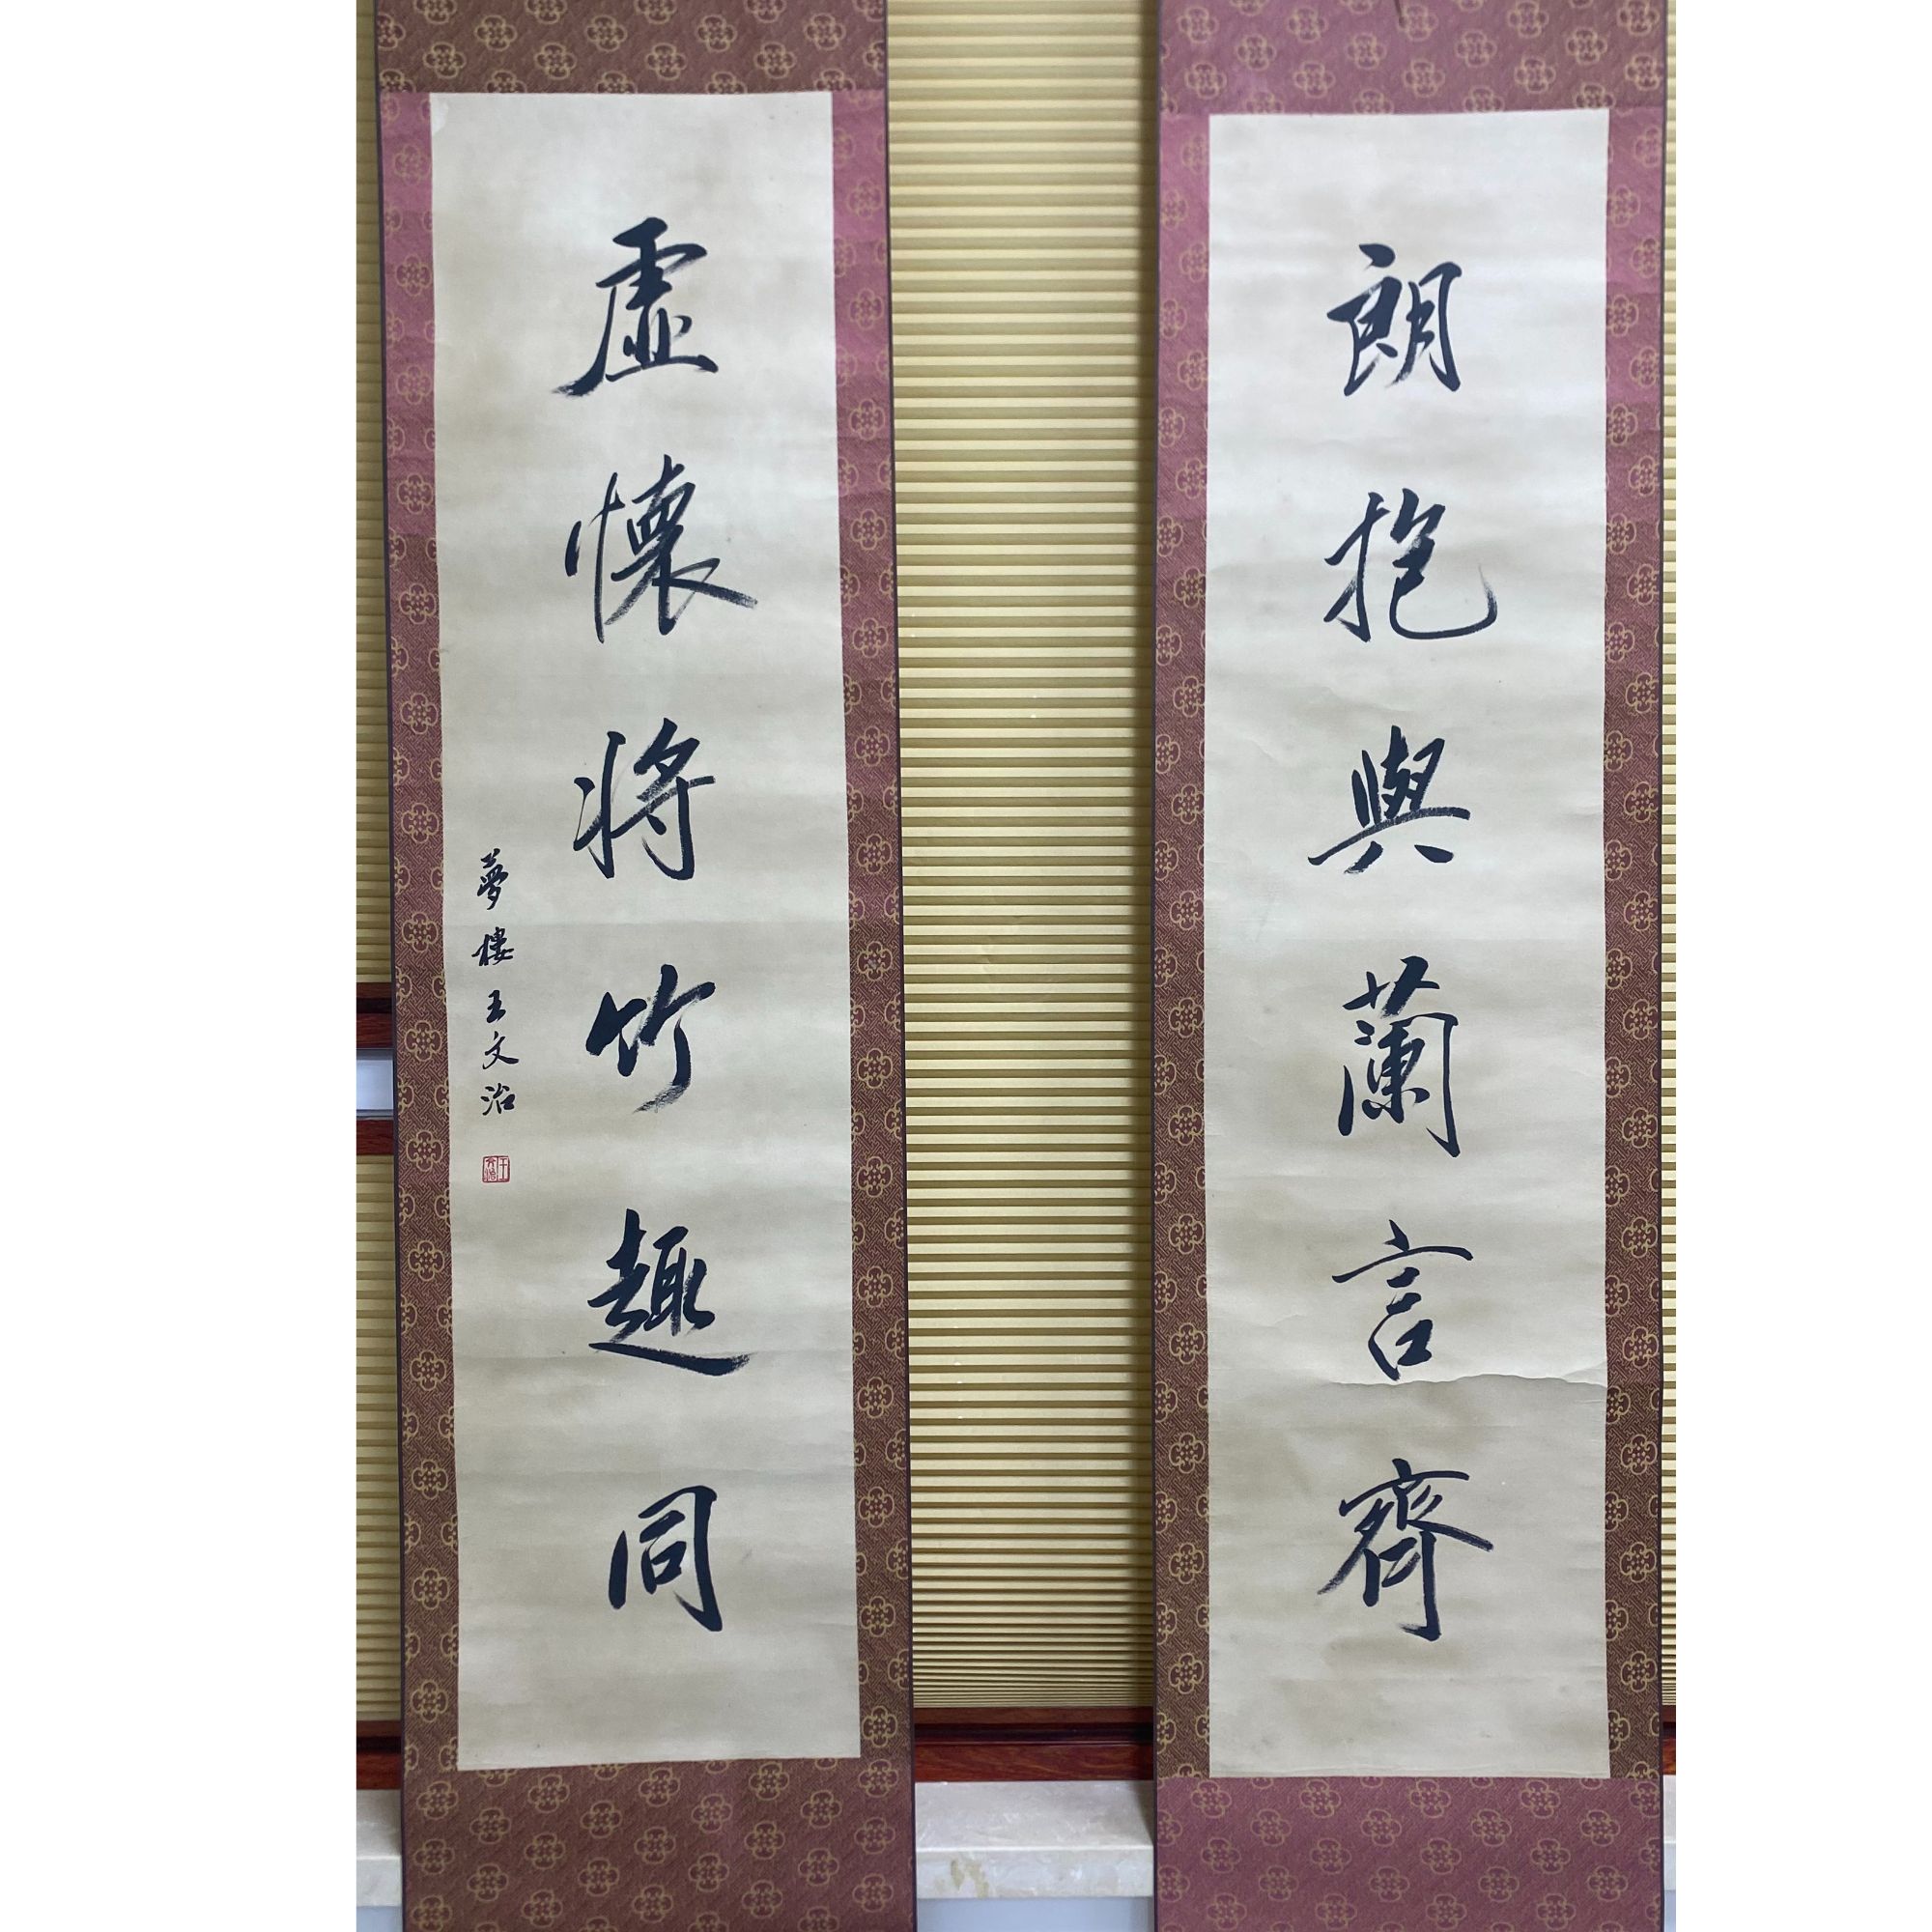 朗抱與蘭言齊
虛懷將竹趣同
夢樓王文治
王文治